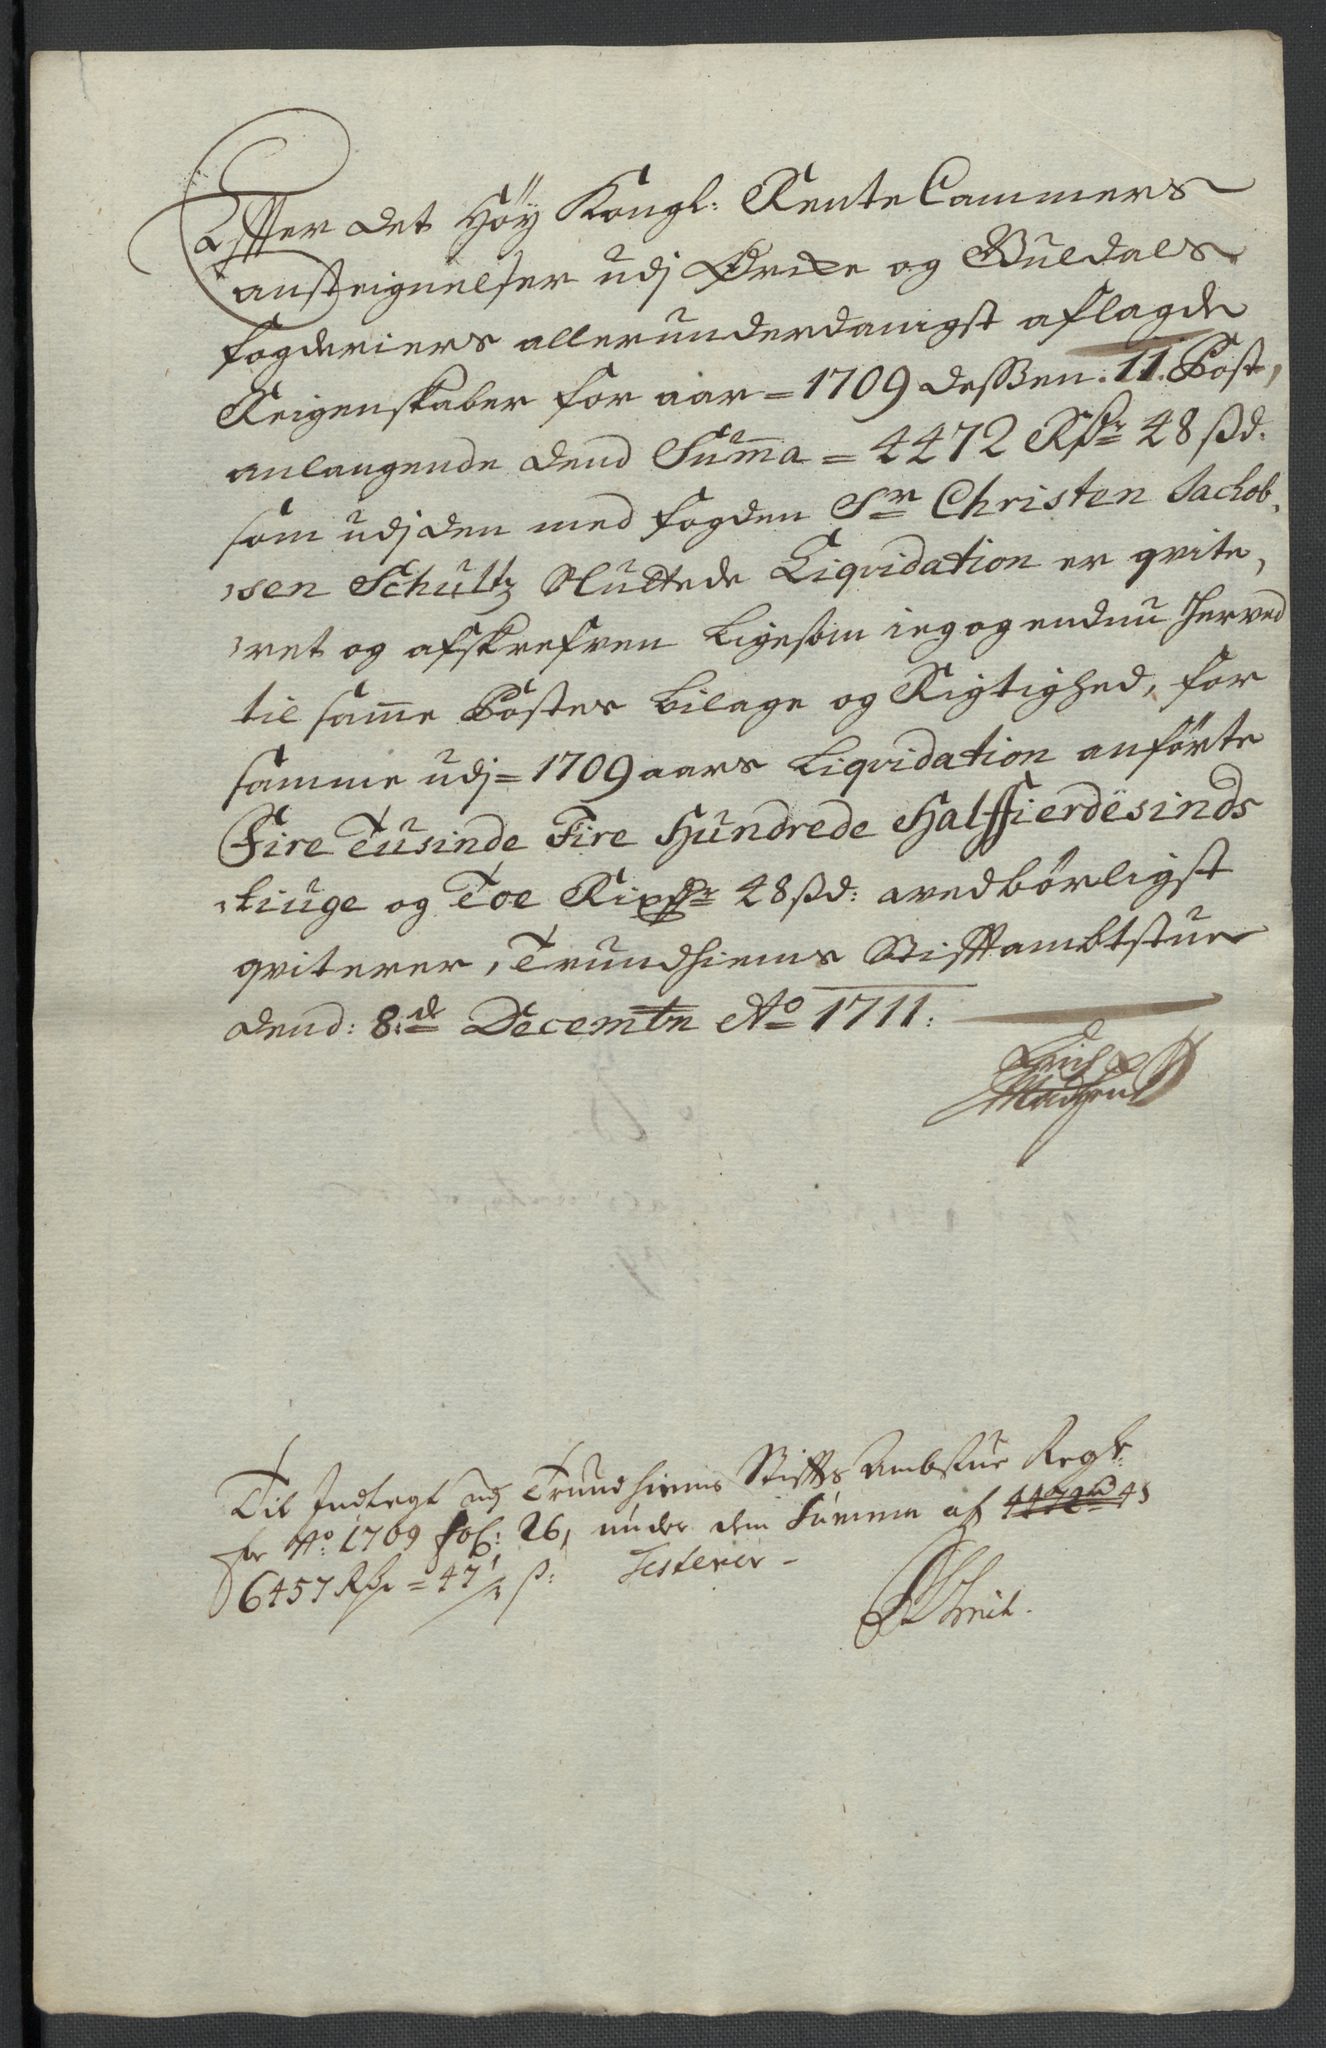 Effter det Høy Kongl: Rente Cammers
anteignelser udj Ørke og Guldals
fogderiers allerunderdanigst aflagde
Reigenskaber for aar = 1709 dessen . 11. Post,
anlangende dend Summa = 4472 Rdr 48 sk.
som udj den med fogden Sr Christen Jachob,
,sen Schultz Sluttede Liqvidation er qvite,
,ret og afskrefven ligesom ieg og endnu herved
til samme Postes bilage og Rigtighed, for
samme udj = 1709 aars Liqvidation anførte
Fire Tusinde Fire Hundrede Halffierdesinds
,tiuge og Toe Rixdr 48 sk: vedbørligst
qviterer, Trundhiems Stiftambtstue
dend: 8:de Decembr Ao 1711:
Erich
Madsen
Til Indtegt udj Trundhiems Stiffts Ambstue Regsk:
for Ao: 1709 fol: 26, under dend Summa af 4472 48
6457 Rdr = 47 1/2 s: Testerer -
Smith.